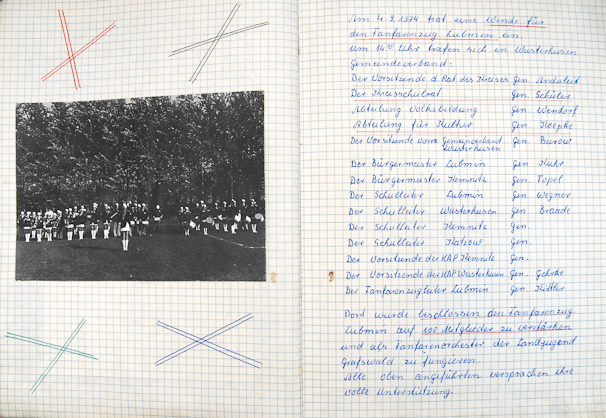 Am 4.9.1974 trat eine Wende für
den Fanfarenzug Lubmin ein.
Um 14⁰⁰ Uhr trafen sich in Wusterhusen
Gemeindeverband:
Der Vorsitzende d. Rat des Kreises Gen.
Der Kreisschulrat Gen. Schüler
Abteilung Volksbildung Gen. Wendorf
Abteilung für Kultur Gen. Koepke
Der Vorsitzende vom Gemeindeverband Wusterhusen Gen. Burow
Der Bürgermeister Lubmin Gen.
Der Bürgermeister Kemnitz Gen. Topel
Der Schulleiter Lubmin Gen. Wegner
Der Schulleiter Wusterhusen Gen. Braade
Der Schulleiter Kemnitz Gen.
Der Schulleiter Katzow Gen.
Der Vorsitzende der KAP Kemnitz Gen.
Der Vorsitzende der KAP Wusterhusen Gen. Gehrke
Der Fanfarenzugleiter Lubmin Gen.
Dort wurde beschlossen den Fanfarenzug
Lubmin auf 100 Mitglieder zu verstärken
und als Fanfarenorchester der Landjugend
Greifswald zu fungieren.
Alle oben angeführten versprachen ihre
volle Unterstützung.